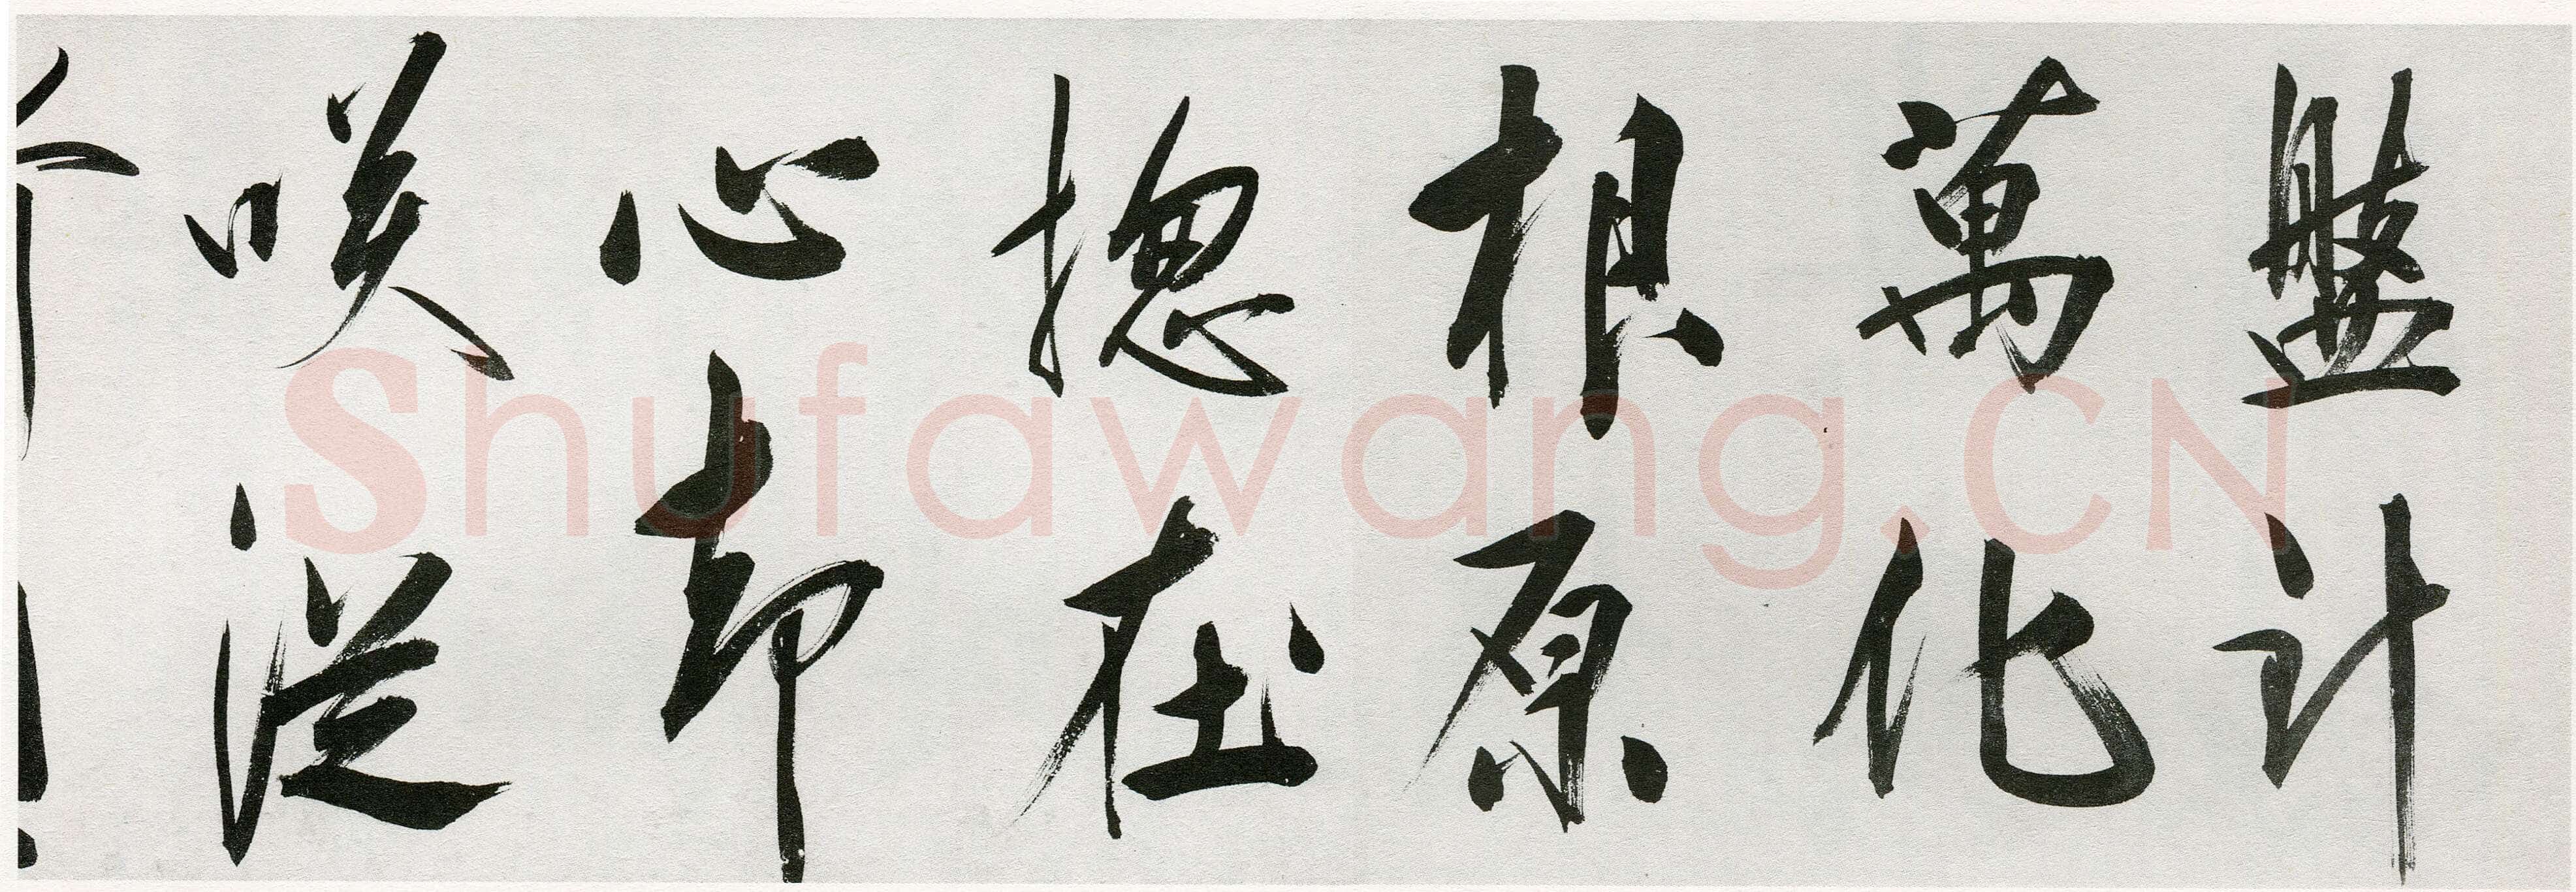 盤針
萬化
根原
摠在
心却
咲從
Shufawang.CN